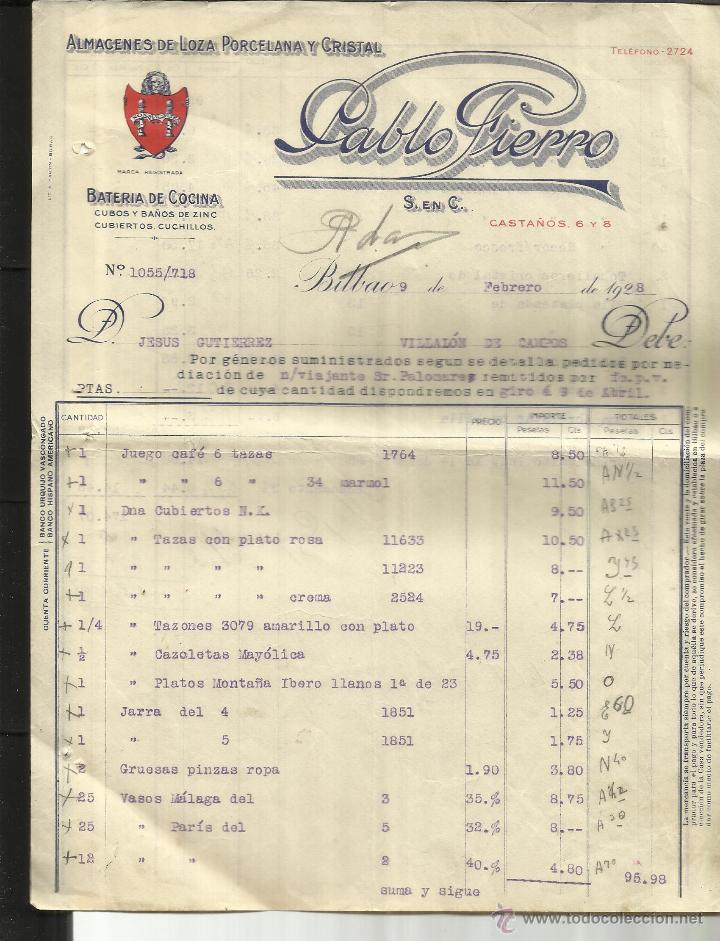 ALMACENES DE LOZA PORCELANA Y CRISTAL
TELÉFONO-2724
Pablo Fierro
MARCA REGISTRADA
S. EN C.
BATERIA DE COCINA
CUBOS Y BAÑOS DE ZINC
CUBIERTOS, CUCHILLOS.
CASTAÑOS, 6 Y 8
Nº 1055/718
Bilbao 9 de Febrero de 1928
D. JESUS GUTIERREZ VILLALÓN DE CAMPOS Debe:
Por géneros suministrados segun se detalla pedidos por me-
diación de n/viajante Sr. Palomares remitidos por fc.p.v.
PTAS. --.-- de cuya cantidad dispondremos en giro á 9 de Abril.
CUENTA CORRIENTE BANCO URQUIJO VASCONGADO
BANCO HISPANO AMERICANO
CANTIDAD PRECIO IMPORTE TOTALES
Pesetas Cts Pesetas Cts
1 Juego café 6 tazas 1764 8.50
1 " " 6 " 34 marmol 11.50 AN½
1 Dna Cubiertos N.K. 9.50 AB25
1 " Tazas con plato rosa 11633 10.50 AX25
1 " " " " 11223 8.-- Y45
1 " " " " crema 2524 7.-- L½
1/4 " Tazones 3079 amarillo con plato 19.- 4.75 L
½ " Cazoletas Mayólica 4.75 2.38 N
1 " Platos Montaña Ibero llanos 1ª de 23 5.50 O
1 Jarra del 4 1851 1.25 E60
1 " 5 1851 1.75 Y
2 Gruesas pinzas ropa 1.90 3.80 N40
25 Vasos Málaga del 3 35.% 8.75
25 " París del 5 32.% 8.-- A20
12 " " 2 40.% 4.80 A70 95.98
suma y sigue
La mercancía se transporta siempre por cuenta y riesgo del comprador
www.todocoleccion.net